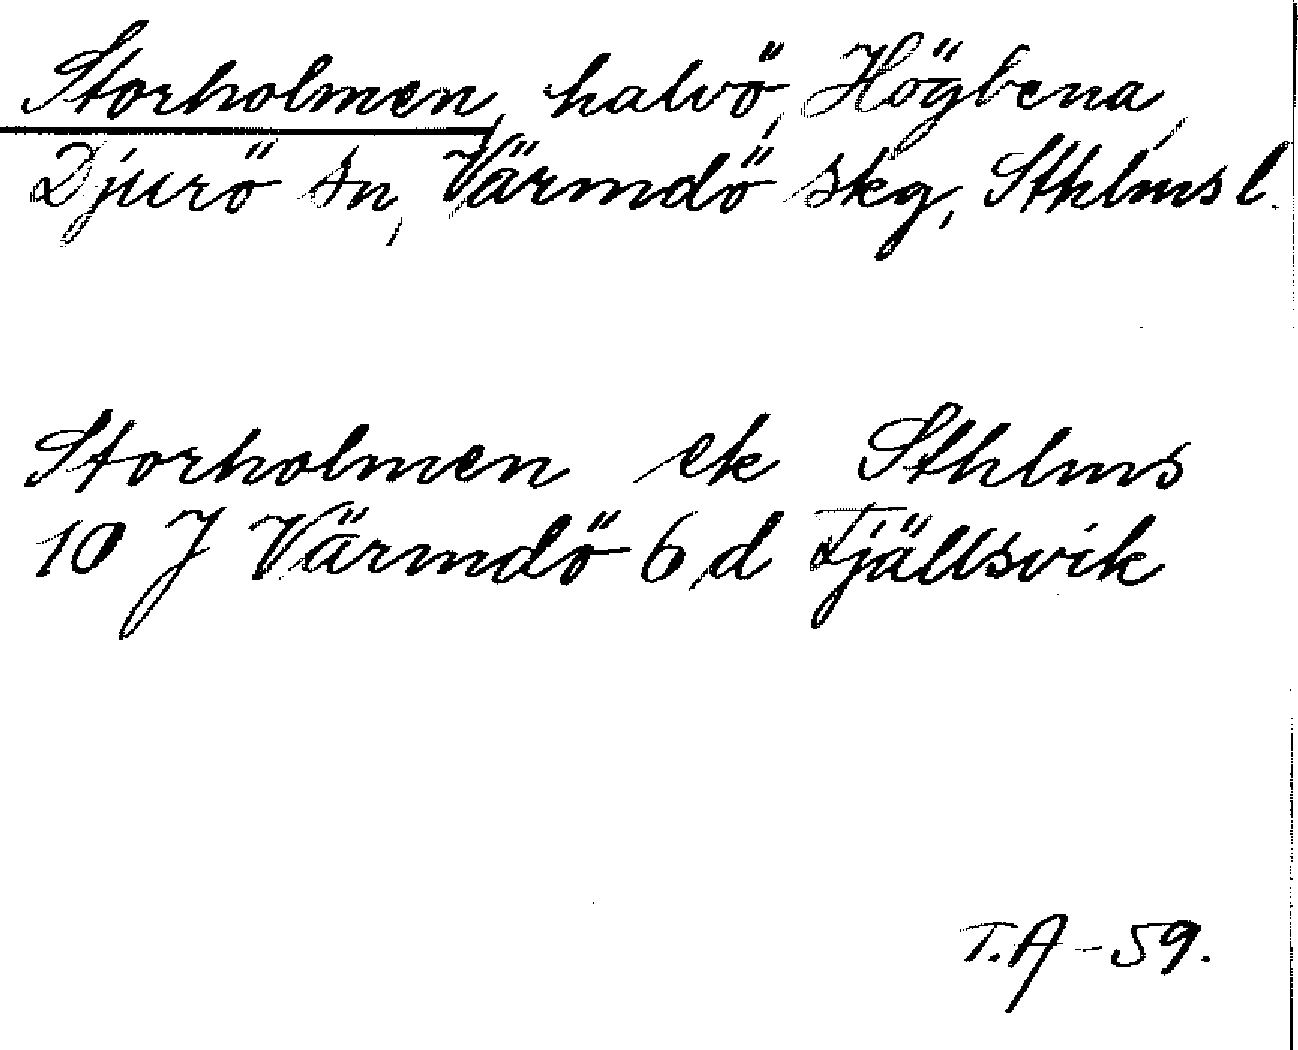 Storholmen, halvö, Högbena,
Djurö sn, Värmdö skg, Sthlms l.
Storholmen ek Sthlms
10 J Värmdö 6 d Fjällsvik
T.A-59.